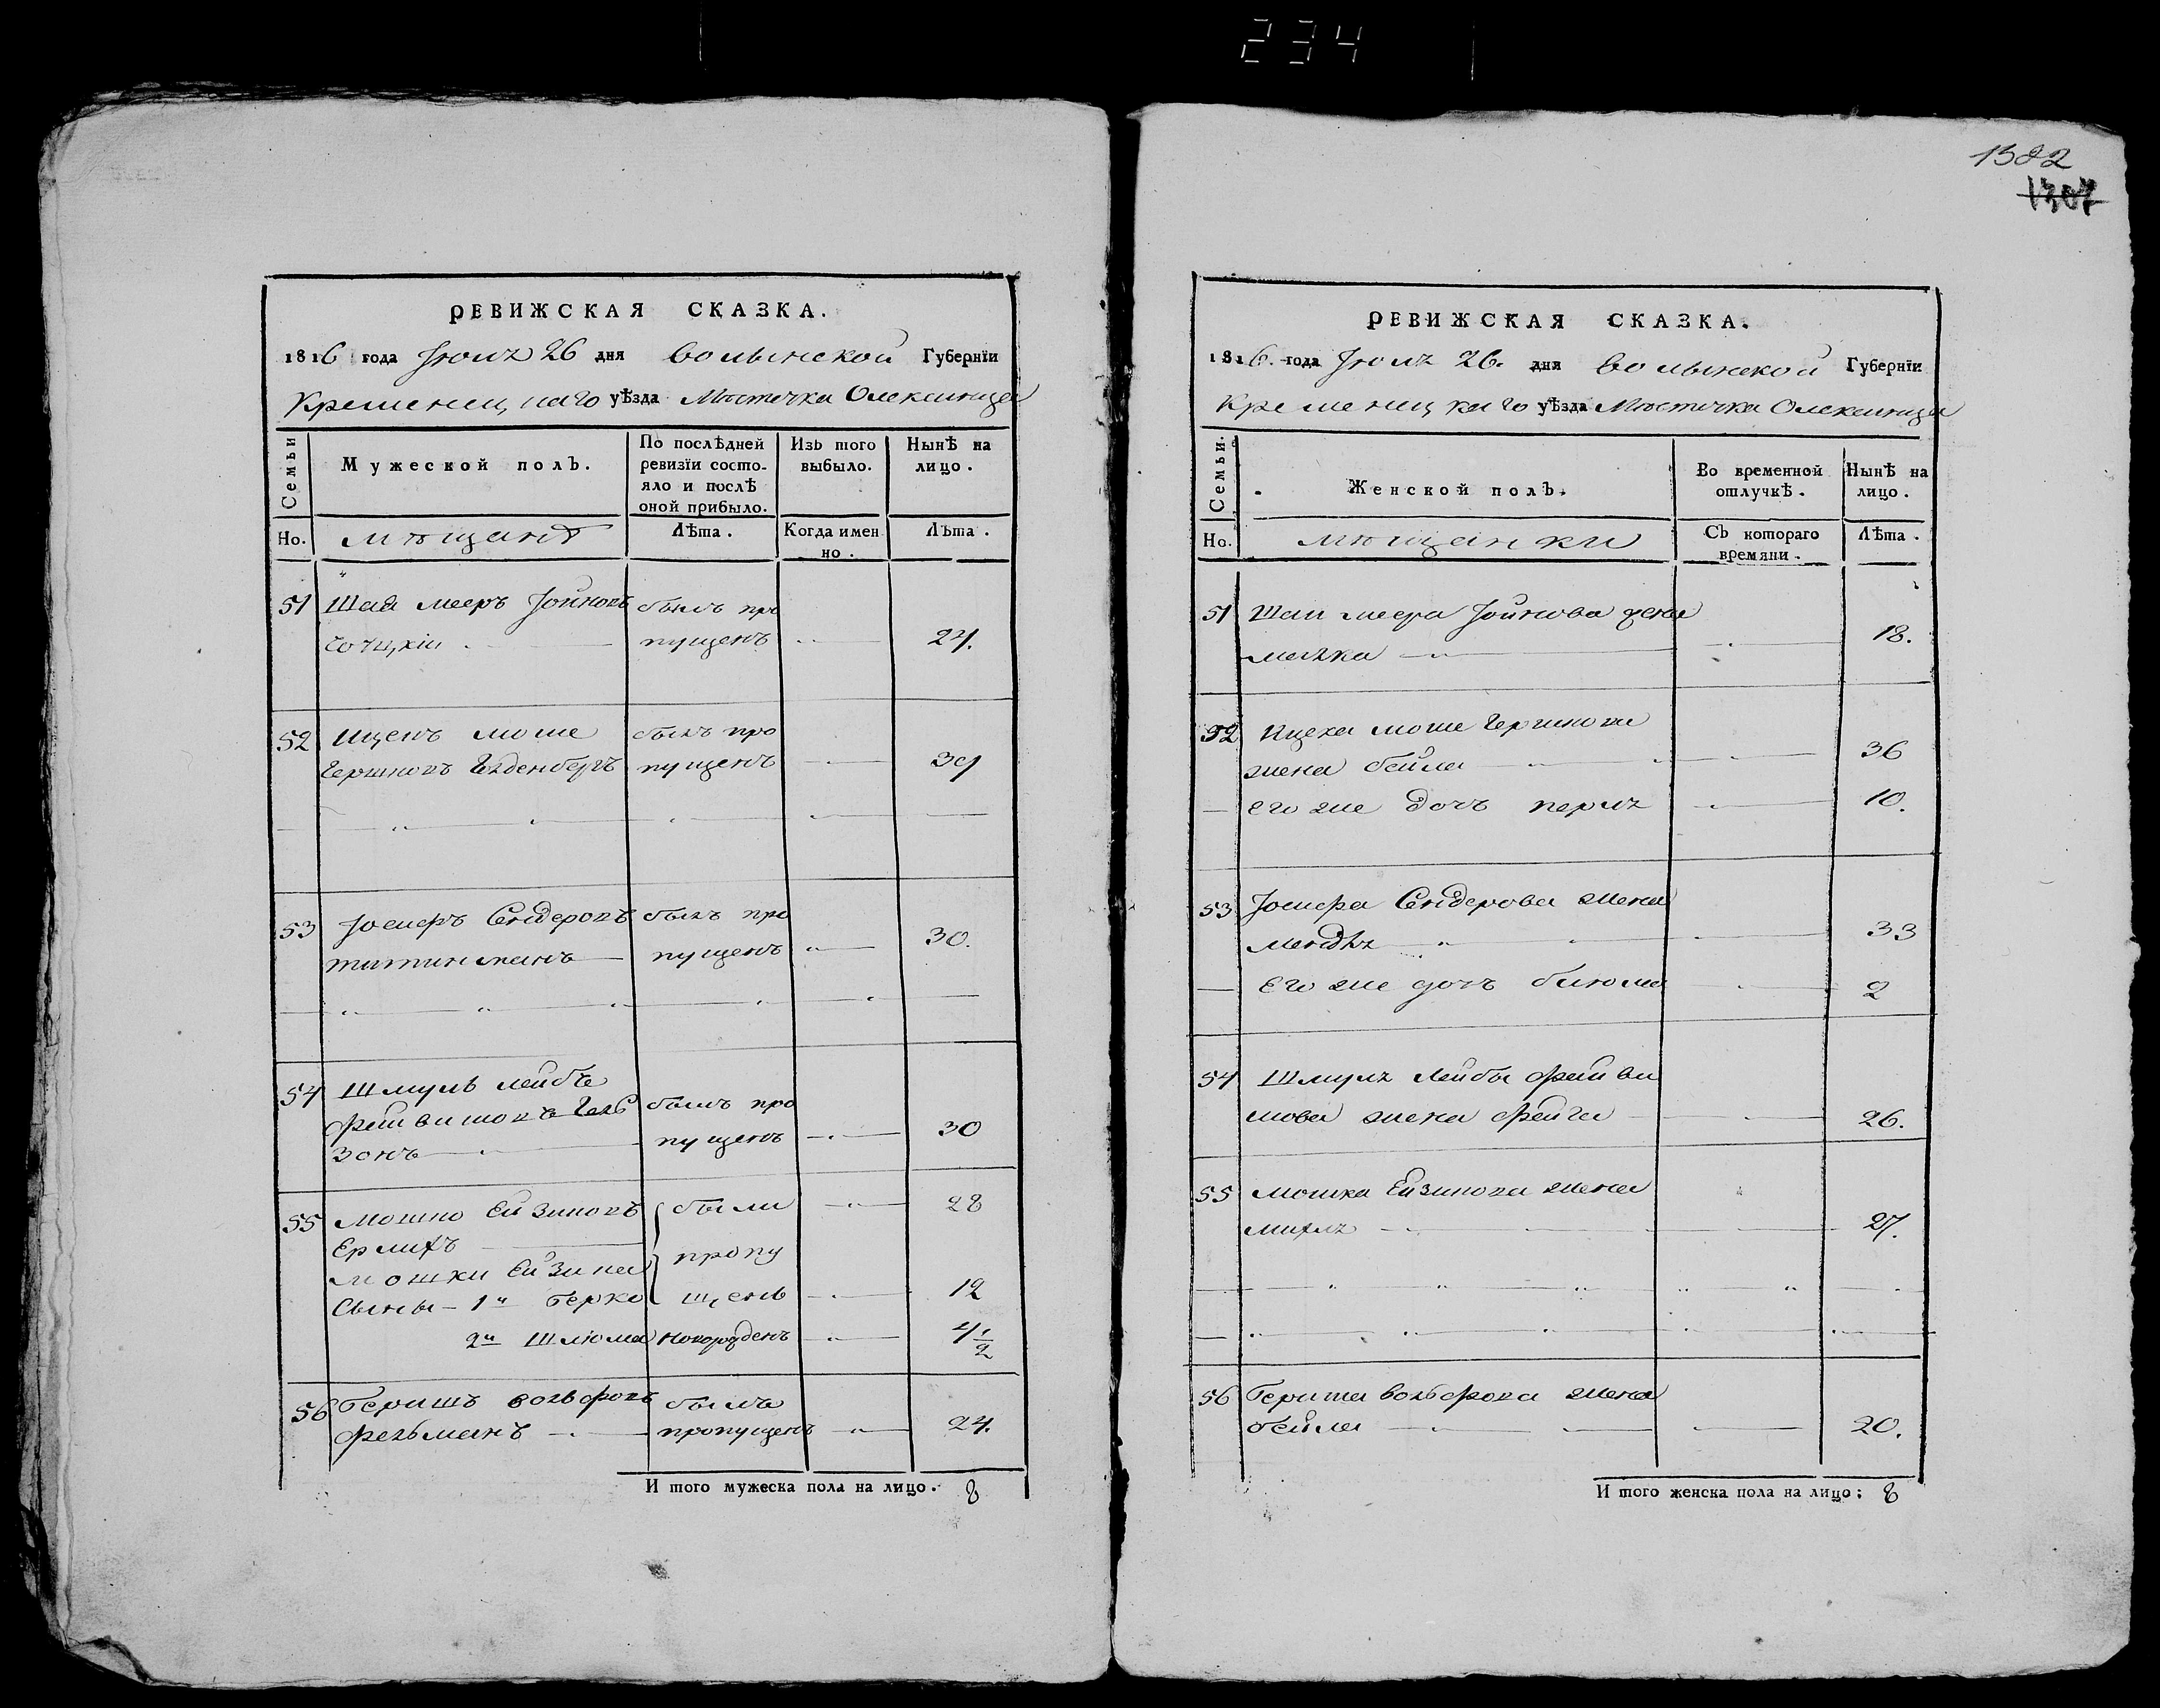 234
1382
1307
РЕВИЖСКАЯ СКАЗКА.
1816 года Іюля 26 дня Волынской Губерніи
Кременецкаго уѣзда Мѣстечка Олексинца
Семьи
Мужеской полъ.
По послѣдней ревизіи состояло и послѣ оной прибыло.
Изъ того выбыло.
Нынѣ на лицо.
Но.
мѣщанѣ
Лѣта.
Когда именно.
Лѣта.
51 Шая Мееръ Іойновъ былъ про
пущенъ 24.
52 Ицекъ Моше былъ про
Гершковъ Гелденбергъ пущенъ 39
53 Іосифъ Сендеровъ былъ про
пущенъ 30.
54 Шмуль Лейбъ
Фейвишовъ Гель былъ про
зонъ пущенъ 30
55 Мошко Ейзиковъ были 28
Ерлихъ
Мошки Ейзика пропу
Сыны 1й Берко щены 12
2й Шлюма новорожденъ 4 1/2
56 Беришъ Вольфовъ былъ
Фельманъ пропущенъ 24.
И того мужеска пола на лицо. 8
РЕВИЖСКАЯ СКАЗКА.
1816. года Іюля 26. дня Волынской Губерніи
Кременецкаго уѣзда Мѣстечка Олексинца
Семьи.
Женской полъ.
Во временной отлучкѣ.
Нынѣ на лицо.
Но.
мѣщанки
Съ котораго времяни.
Лѣта.
51 Шаи Меера Іойнова жена
Малка 18.
52 Ицека Моше Гершкова
жена Бейла 36
Его же дочь Перля 10.
53 Іосифа Сендерова жена
Мендля 33
Его же дочь Блюма 2
54 Шмуля Лейбы Фейви
шова жена Фейга 26.
55 Мошка Ейзикова жена
27.
56 Бериша Вольфова жена
Бейла 20.
И того женска пола на лицо: 8